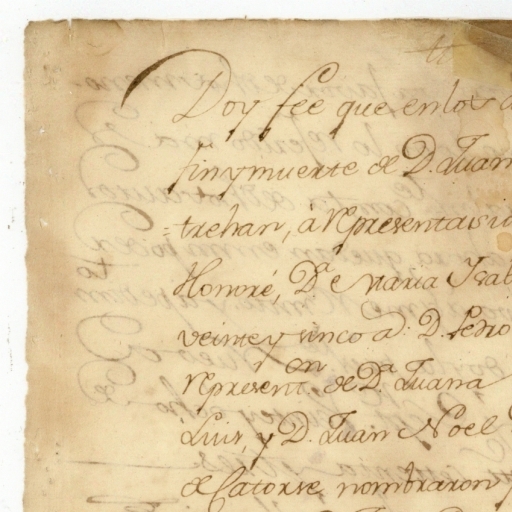 Doy fee que en los
fin y muerte de D. Juan
trehan, à representasi
Honoré, Dª Maria Ysab
veinte y sinco a: D. Pedro
represent.on de Dª Juana
Luis y D. Juan Noel
de Catorse nombraron